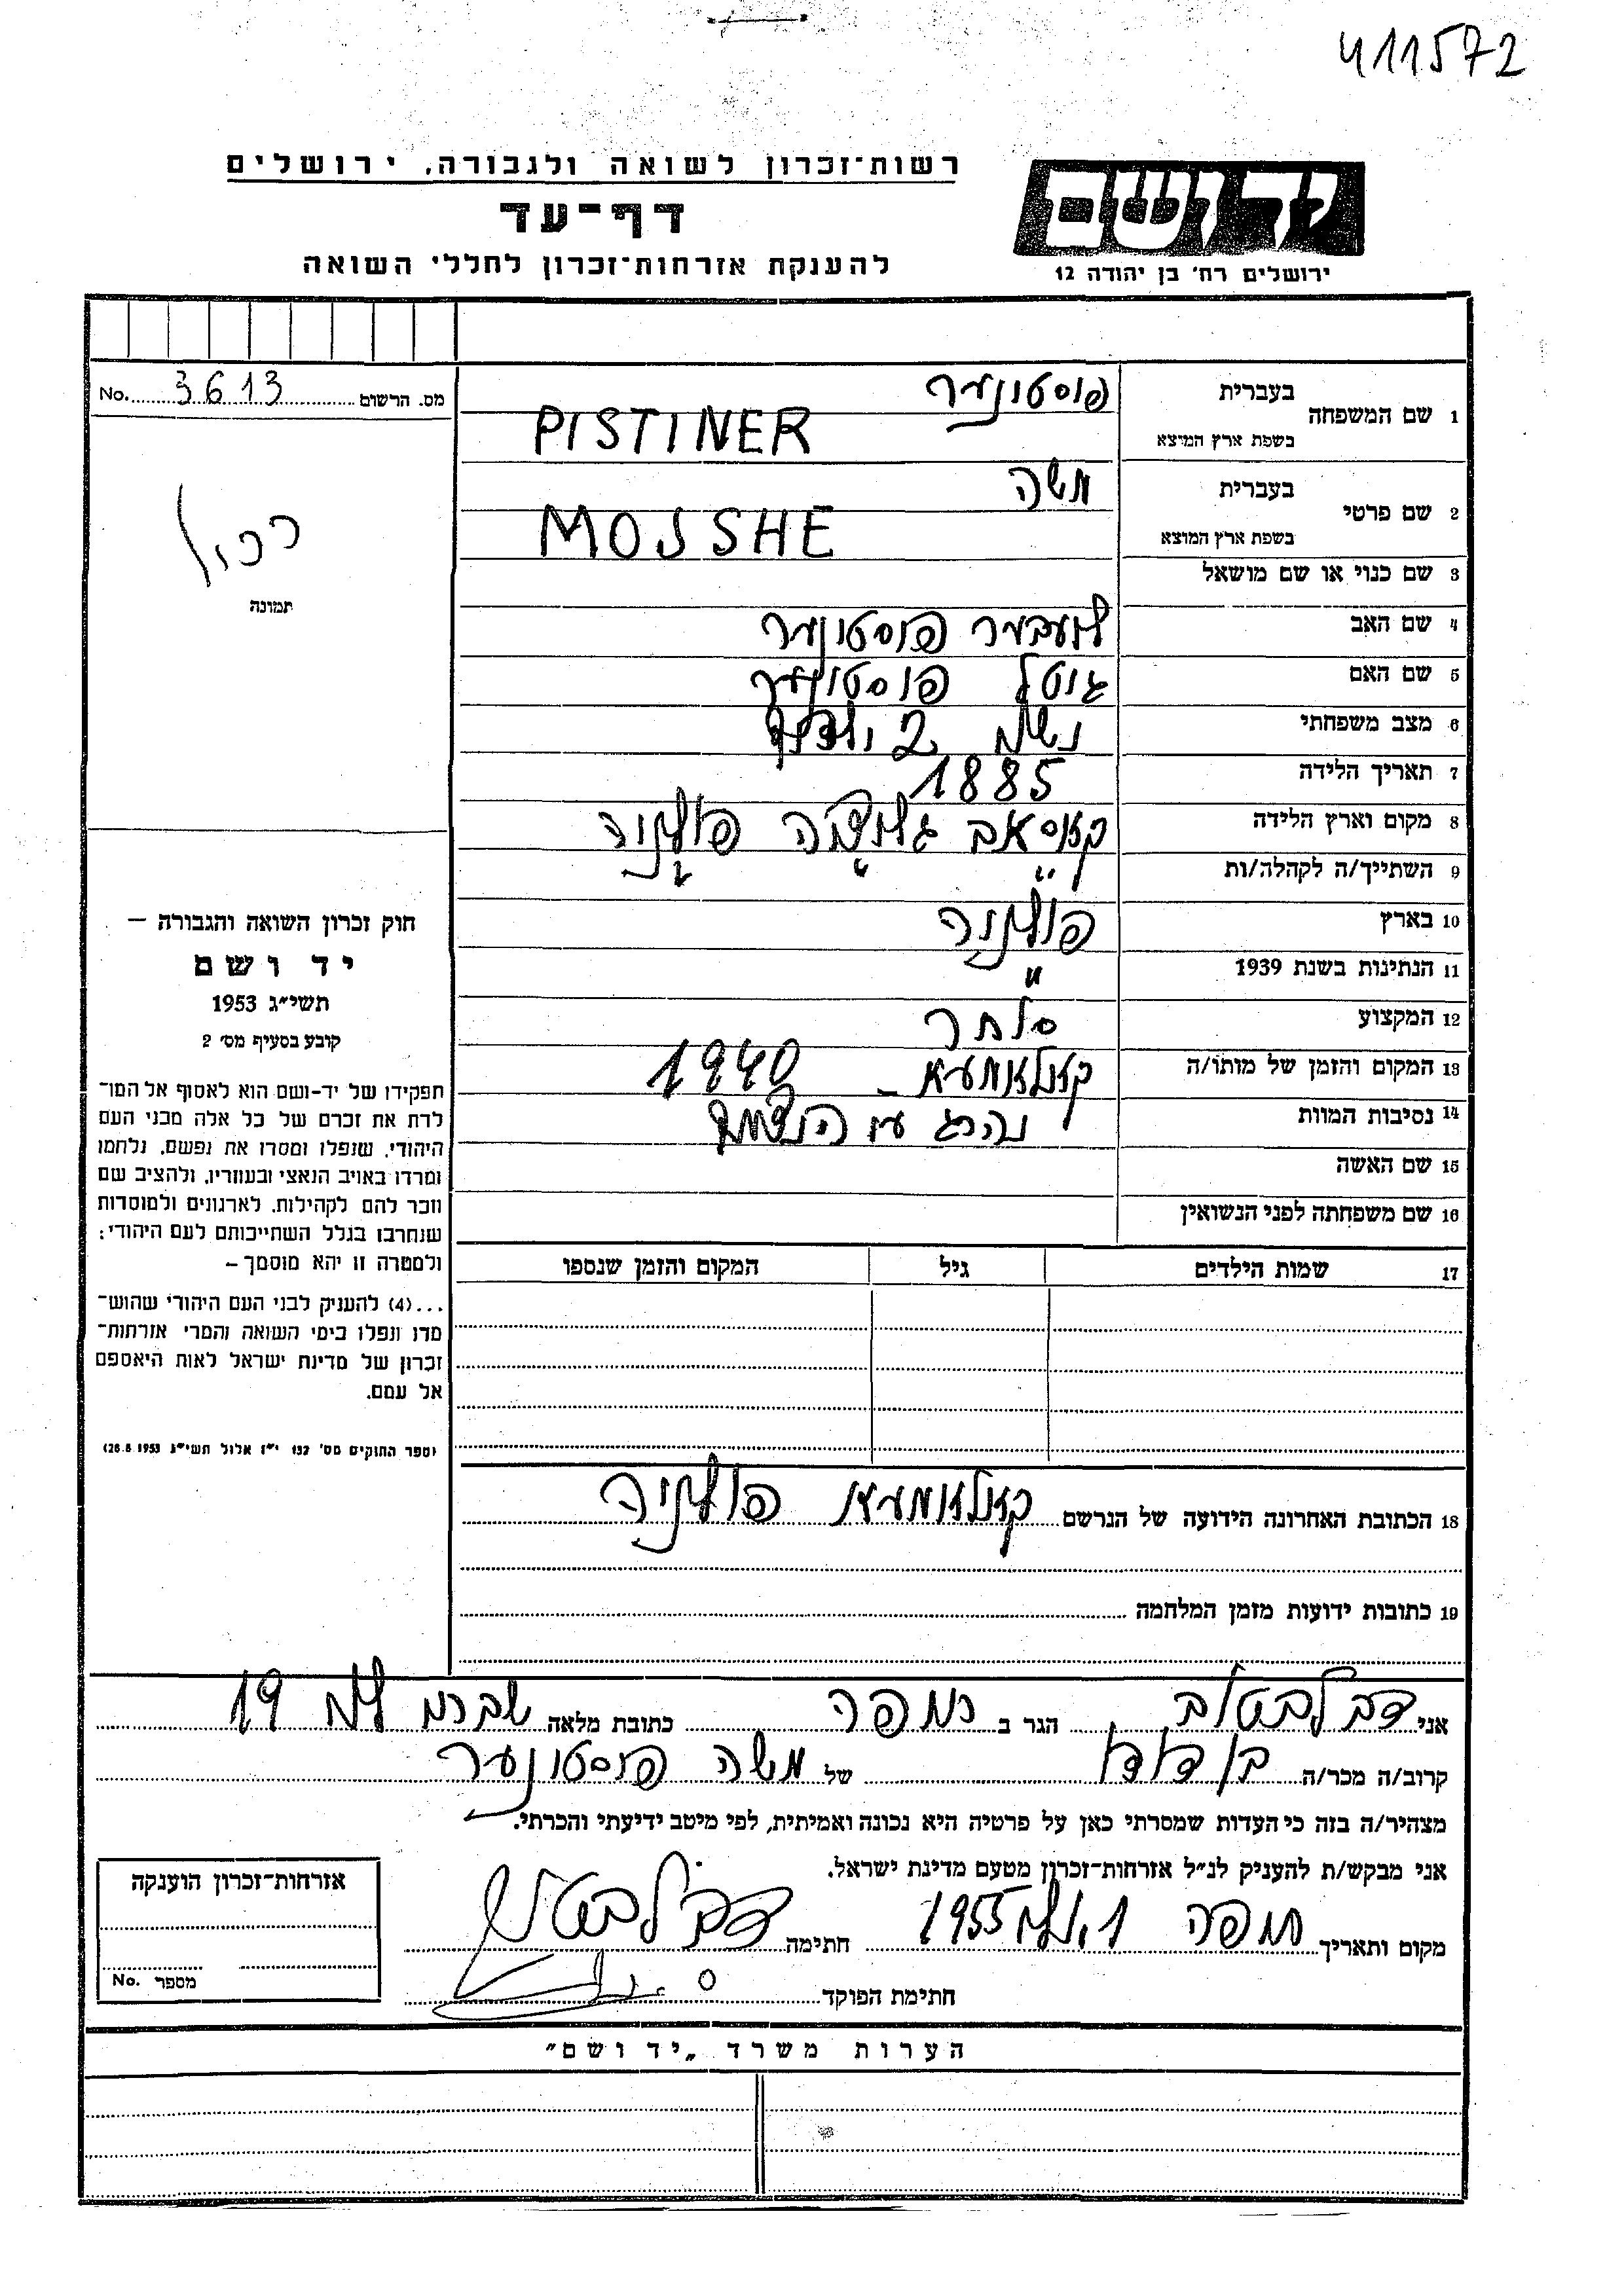 411572
רשות־זכרון לשואה ולגבורה, ירושלים
דף־עד
להענקת אזרחות־זכרון לחללי השואה
ידושם
ירושלים רח' בן יהודה 12
מס. הרשום 3613 No.
תמונה
1 שם המשפחה בעברית פיסטינער
בשפת ארץ המוצא PISTINER
2 שם פרטי בעברית משה
בשפת ארץ המוצא MOSSHE
3 שם כנוי או שם מושאל
4 שם האב פיסטינער
5 שם האם גיטל פיסטינער
6 מצב משפחתי נשוי 2 ילדים
7 תאריך הלידה 1885
8 מקום וארץ הלידה קאסאב גליציה פולניה
9 השתייך/ה לקהלה/ות " " "
10 בארץ פולניה
11 הנתינות בשנת 1939 "
12 המקצוע סוחר
13 המקום והזמן של מותו/ה קאלאמעא – 1940
14 נסיבות המוות נהרג ע״י הנאצים
15 שם האשה
16 שם משפחתה לפני הנשואין
17 שמות הילדים גיל המקום והזמן שנספו
חוק זכרון השואה והגבורה —
יד ושם
תשי״ג 1953
קובע בסעיף מס' 2
תפקידו של יד-ושם הוא לאסוף אל המו־
לדת את זכרם של כל אלה מבני העם
היהודי, שנפלו ומסרו את נפשם, נלחמו
ומרדו באויב הנאצי ובעוזריו, ולהציב שם
וזכר להם לקהילות, לארגונים ולמוסדות
שנחרבו בגלל השתייכותם לעם היהודי;
ולמטרה זו יהא מוסמך –
...(4) להעניק לבני העם היהודי שהוש־
מדו ונפלו בימי השואה והמרי אזרחות־
זכרון של מדינת ישראל לאות היאספם
אל עמם.
(ספר החוקים מס' 132 י״ז אלול תשי״ג 28.8.1953)
18 הכתובת האחרונה הידועה של הנרשם קאלאמעא פולניה
19 כתובות ידועות מזמן המלחמה
אני דב הגר ב חיפה כתובת מלאה 19
קרוב/ה מכר/ה בן דודו של משה פיסטינער
מצהיר/ה בזה כי העדות שמסרתי כאן על פרטיה היא נכונה ואמיתית, לפי מיטב ידיעתי והכרתי.
אני מבקש/ת להעניק לנ״ל אזרחות־זכרון מטעם מדינת ישראל.
מקום ותאריך חיפה 1 1955 חתימה
חתימת הפוקד
אזרחות־זכרון הוענקה
מספר No.
הערות משרד „יד ושם״